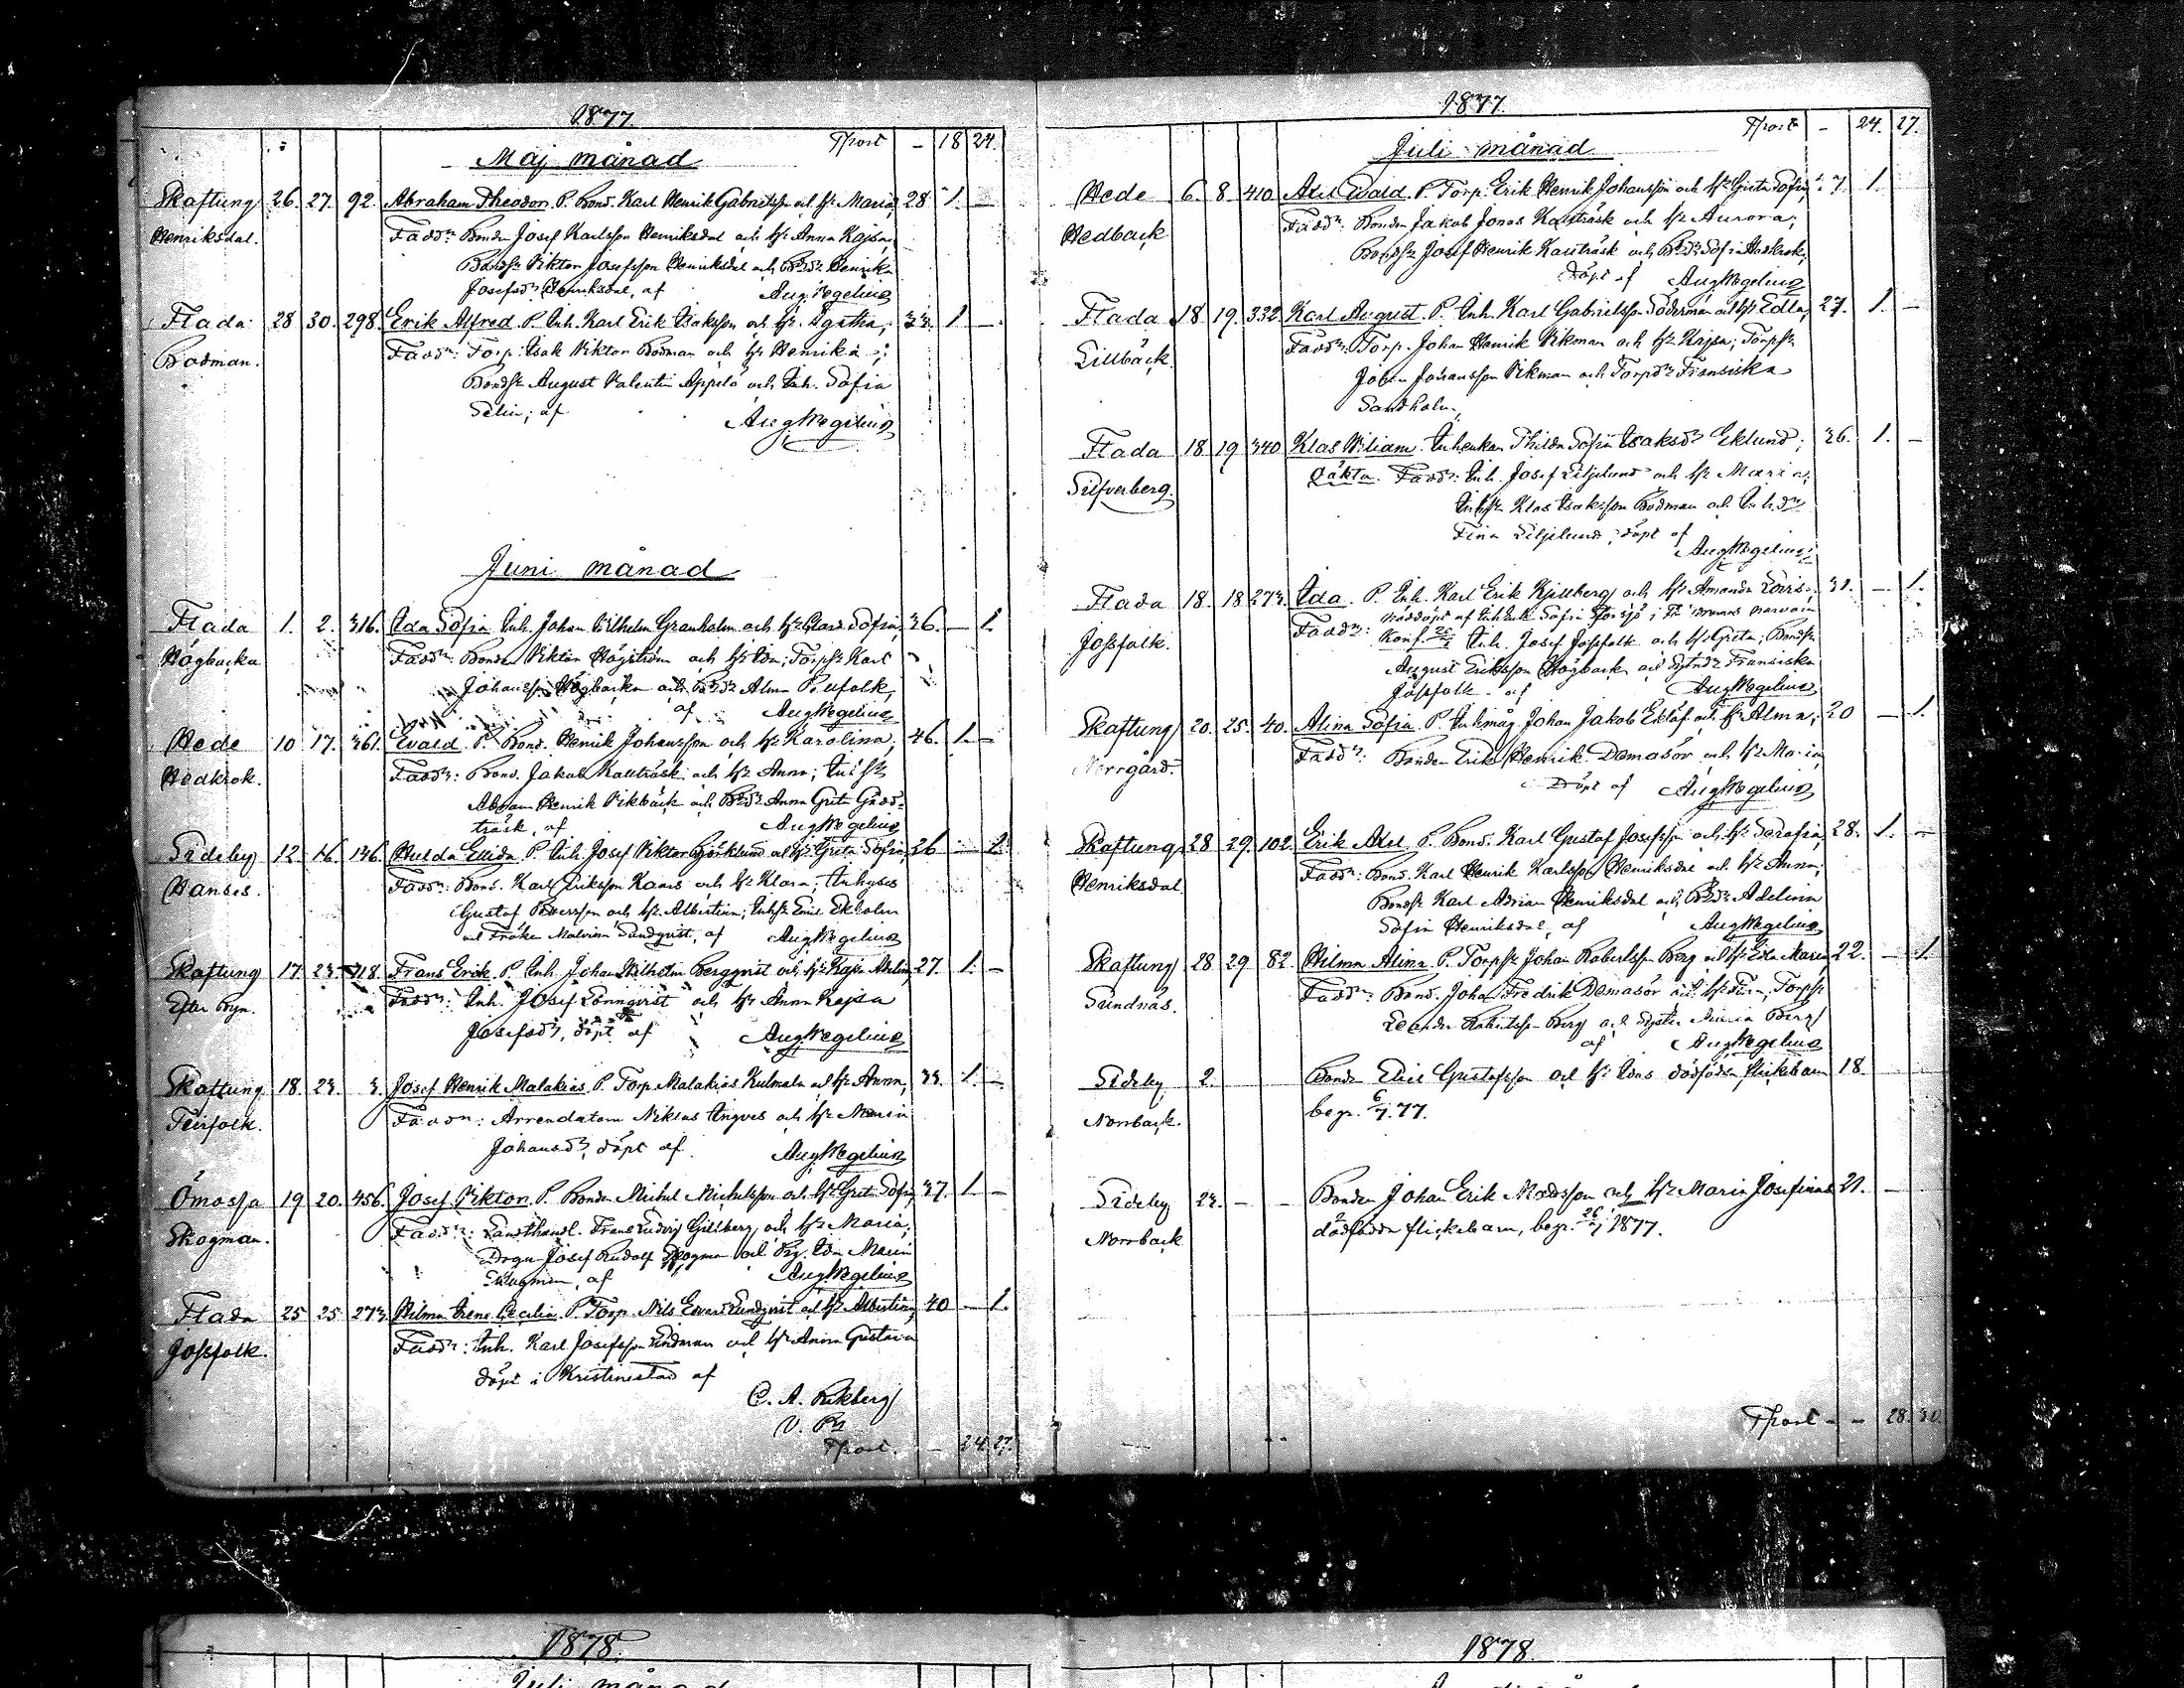 1877.
Tpost - 18 24.
Maj månad
Skaftung 26. 27. 92. Abraham Theodor. P. Bond. Karl Henrik Gabrielsson och h. Maria, 28 1. -
Henriksdal. Faddr: Bonden Josef Karlsson Henriksdal och h. Anna Kajsa,
Bonds. Viktor Josefsson Henriksdal och Bd. Henrika
Josefsdr Henriksdal, af Aug. Wegelius
Flada 28 30. 298. Erik Alfred. P. Inh. Karl Erik Isaksson och h. Agatha, 33. 1. -
Bodman. Faddr: Torp. Isak Viktor Bodman och h. Henrika;
Bonds. August Valentin Appelö och Inh. Sofia
Selin; af Aug Wegelius
Juni månad
Flada 1. 2. 316. Ida Sofia Inh. Johan Vilhelm Granholm och h. Clara Sofia, 36. - 1.
Högbacka Faddr: Bonden Viktor Högström och h. Ida; Torps. Karl
Johansson Högbacka och Bd. Alma Rufolk,
af Aug Wegelius
Hede 10 17. 361. Evald. P. Bond. Henrik Johansson och h. Karolina, 46. 1. -
Hedkrok. Faddr: Bond. Jakob Kallträsk och h. Anna;
Abram Henrik Vikbäck och Bd. Anna Greta Gådd-
träsk, af Aug Wegelius
Sideby 12 16. 146. Hulda Ellida P. Inh. Josef Viktor Björklund och h. Greta Sofia 26 - 1.
Hanses. Faddr: Bond. Karl Eriksson Kanis och h. Klara; Inhyses
Gustaf Persson och h. Albertina; Inhs. Emil Ekholm
och Fröken Malvina Sundqvist, af Aug Wegelius
Skaftung 17. 23. 118. Frans Erik. P. Inh. Johan Vilhelm Bergqvist och h. Kajsa 27. 1. -
Efter Byn. Faddr: Inh. Josef Lönnqvist och h. Anna Kajsa
Josefsdr, döpt af Aug Wegelius
Skaftung 18. 23. 3. Josef Henrik Malakias P. Torp. Malakias Kulmala och h. Anna, 33. 1. -
Teirfolk. Faddr: Arrendatorn Niklas Ingves och h. Maria
Johansdr, döpt af Aug Wegelius
Ömossa 19. 20. 456. Josef Viktor. P. Bonden Michel Michelsson och h. Greta Sofia 37. 1. -
Skogman. Faddr: Landthandl. Frans Ludvig Gillberg och h. Maria;
Dreng Josef Rudolf Skogman och Pig. Ida Maria
Skogman, af Aug Wegelius
Flada 25 25. 273. Hilma Irene Cecilia P. Torp. Nils Edvard Lundqvist och h. Albertina, 40 - 1.
Jossfolk. Faddr: Inh. Karl Josefsson Lindman och h. Anna Gustava
döpt i Kristinestad af
C. A. Rikberg
V. P.
Tpost. - 24. 27.
1877.
Tpost - 24. 27.
Juli månad
Hede 6. 8. 410 Axel Evald. P. Torp. Erik Henrik Johansson och h. Greta Sofia, 27. 1.
Hedback Faddr: Bonden Jakob Jonas Kallträsk och h. Aurora;
Bonds. Josef Henrik Kallträsk och Bd. Sofia Hedkrok,
Döpt af Aug Wegelius
Flada 18 19. 332. Karl August. P. Inh. Karl Gabrielsson Söderman och h. Edla, 27. 1. -
Lillbäck. Faddr: Torp. Johan Henrik Vikman och h. Kajsa; Torps.
Johan Johansson Vikman och Torpd. Fransiska
Sandholm.
Flada 18 19 340 Klas Viliam. Inhenkan Thilda Sofia Isaksdr Eklund; 36. 1. -
Silfverberg. oäkta. Faddr: Inh. Josef Liljelund och h. Maria;
Inhs. Klas Isaksson Bodman och Inh.dr
Fina Liljelund, döpt af
Aug Wegelius
Flada 18. 18 273. Ida. P. Inh. Karl Erik Kjellberg och h. Amanda Lovisa, 31. - 1.
Jossfolk. Nöddöpt af Inh. Enk. Sofia
Faddr: Konf. Inh. Josef Jossfolk och h. Greta; Bonds.
August Eriksson Högback och Fransiska
Jossfolk, af Aug Wegelius
Skaftung 20. 25. 40. Alina Sofia. P. Johan Jakob Eklöf och h. Alma, 20 - 1.
Norrgård. Faddr: Bonden Erik Henrik Damasör och h. Maria
Döpt af Aug Wegelius
Skaftung 28 29. 102. Erik Axel. P. Bond. Karl Gustaf Josefsson och h. Serafia, 28. 1. -
Henriksdal Faddr: Bond. Karl Henrik Karlsson Henriksdal och h. Anna;
Bonds. Karl Adrian Henriksdal och Bd. Adelina
Sofia Henriksdal, af Aug Wegelius
Skaftung 28 29 82. Hilma Alina P. Torps. Johan Robertsson Berg och h. Edla Maria 22. - 1.
Sundnäs. Faddr: Bond. Johan Fredrik Damasör och h. Fina, Torps.
Leander Robertsson Berg och Maria Berg
af Aug Wegelius
Sideby 2. Bonden Elis Gustafsson och h. Idas dödfödda flickebarn 18.
Norrback. begr. 6/7. 77.
Sideby 23. - - Bonden Johan Erik Mattsson och h. Maria Josefinas 21. -
Norrback dödfödda flickebarn, begr. 26/7 1877.
Tpost - - 28. 30.
1878.
Juli månad
1878.